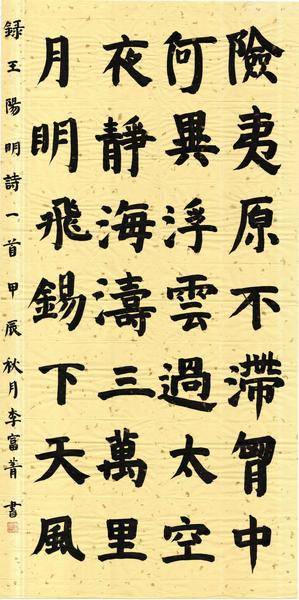 險夷原不滯胷中
何異浮雲過太空
夜靜海濤三萬里
月明飛錫下天風
錄王陽明詩一首甲辰秋月李富菁書